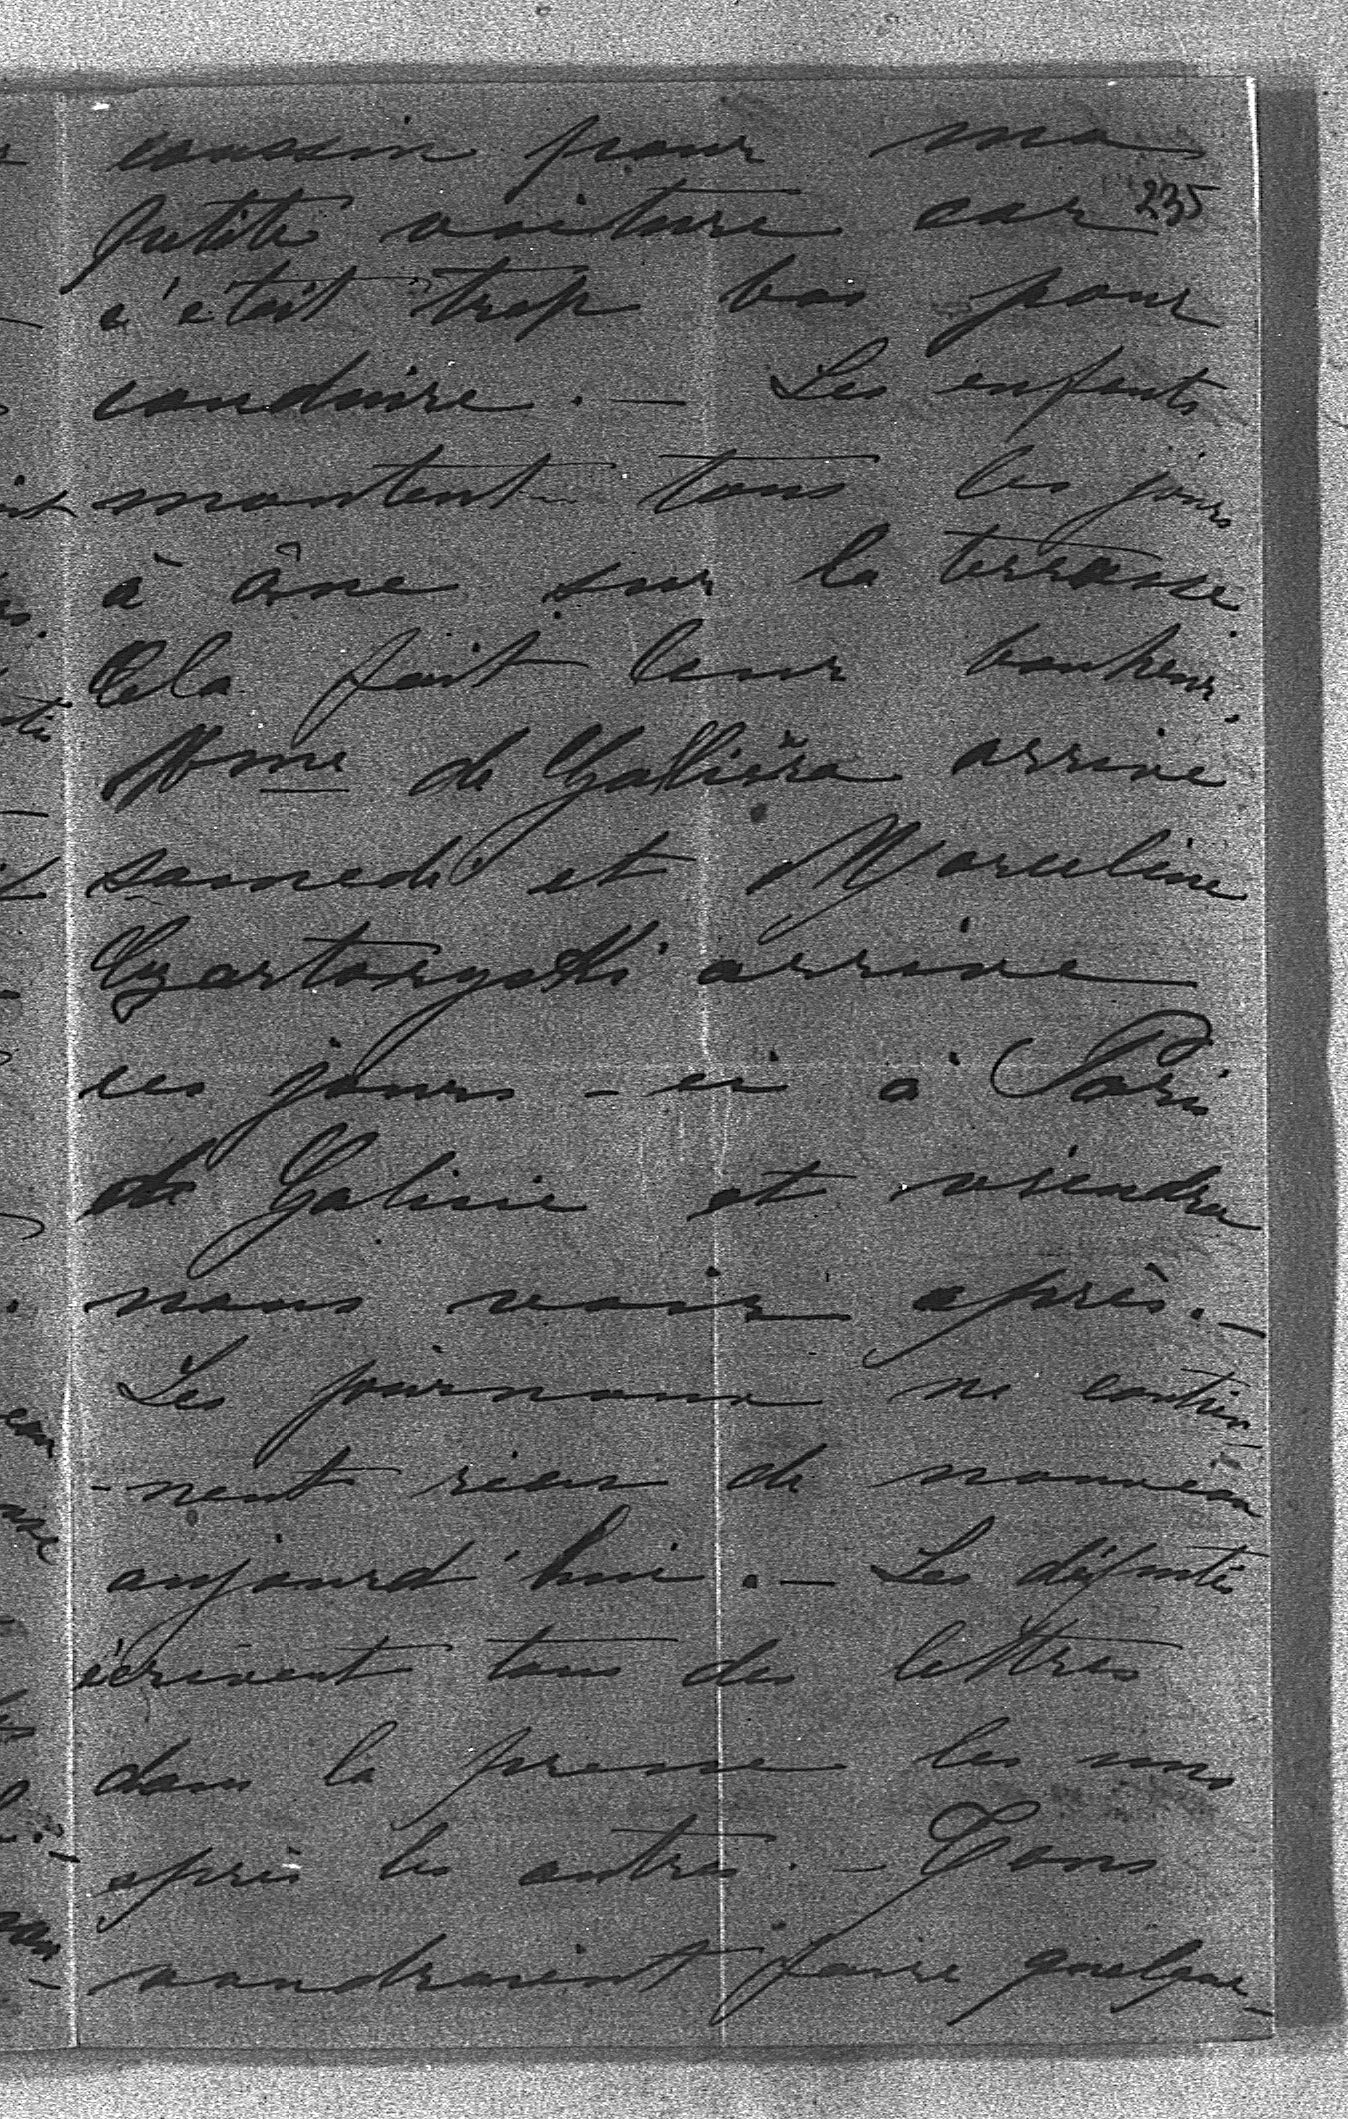 coussin pour ma
235
petite voiture car
c'était trop bas pour
conduire. — Les enfants
montent tous les jours
à âne sur la terrasse.
Cela fait leur bonheur.
Mme de Galliera arrive
samedi et Marceline
Czartoryski arrive
ces jours-ci à Paris
de Galicie et viendra
nous voir après. —
Les journaux ne contien
-nent rien de nouveau
aujourd'hui. — Les députés
écrivent tous des lettres
dans la presse les uns
après les autres. — Tous
voudraient faire quelque-